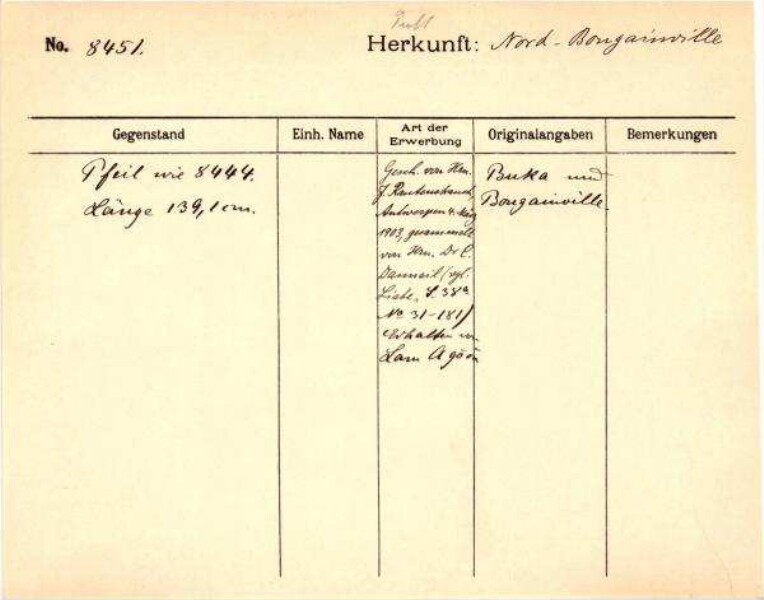 No. 8451. Herkunft: Nord-Bougainville
Gegenstand Einh. Name Art der Erwerbung Originalangaben Bemerkungen
Pfeil wie 8444.
Länge 139,1 cm.
Gesch. von Hrn.
J. Rautenstrauch,
Antwerpen 4. März
1903, gesammelt
von Hrn. Dr C.
Danneil (vgl.
Liste, S. 38a
No 31-181)
Erhalten
Lam
Buka und
Bougainville.